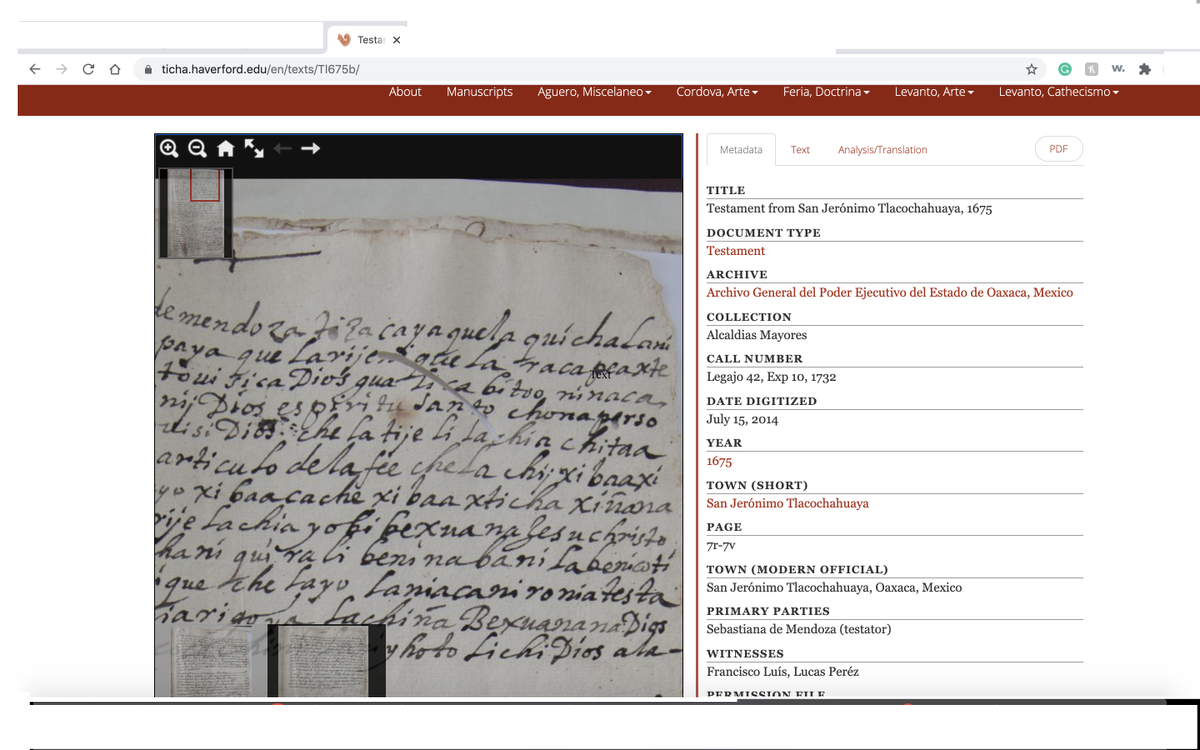 Testa
ticha.haverford.edu/en/texts/Tl675b/
W.
About Manuscripts Aguero, Miscelaneo Cordova, Arte Feria, Doctrina Levanto, Arte Levanto, Cathecismo
de mendoza tiza caya quela quichalani
paya que larije que la racapeaxte
toui sica Dios gua Lica bitoo ninaca
nij Dios espiritu santo chonaperso
Dios che la tije li lachia chitaa
articulo de la fee chela chij xibaaxi
yo xi baa cache xi baa xticha xiñana
rije lachia yobi bexuana Jesu christo
hani qui rali benina bani la beni coti
que che layo laniacani ronia testa
lachiña Bexuanana Dios
y hoto Lichi Dios ala-
Text
Metadata Text Analysis/Translation PDF
TITLE
Testament from San Jerónimo Tlacochahuaya, 1675
DOCUMENT TYPE
Testament
ARCHIVE
Archivo General del Poder Ejecutivo del Estado de Oaxaca, Mexico
COLLECTION
Alcaldias Mayores
CALL NUMBER
Legajo 42, Exp 10, 1732
DATE DIGITIZED
July 15, 2014
YEAR
1675
TOWN (SHORT)
San Jerónimo Tlacochahuaya
PAGE
7r-7v
TOWN (MODERN OFFICIAL)
San Jerónimo Tlacochahuaya, Oaxaca, Mexico
PRIMARY PARTIES
Sebastiana de Mendoza (testator)
WITNESSES
Francisco Luís, Lucas Peréz
PERMISSION FILE